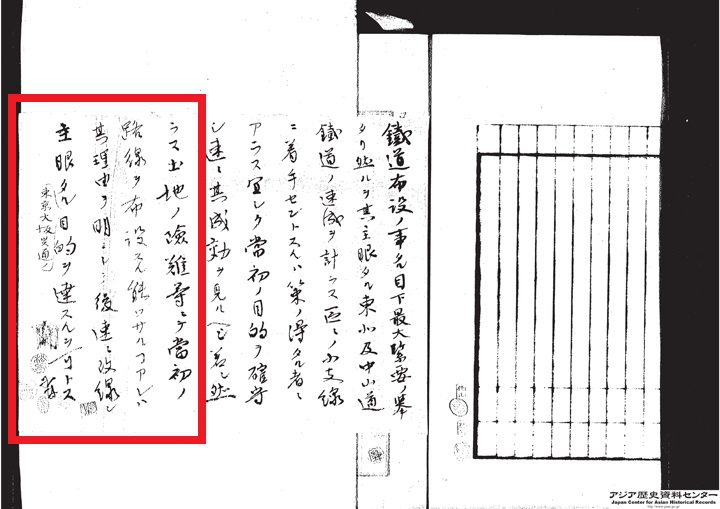 鐵道布設ノ事タル目下最大緊要ノ舉
タリ然ルヲ其主眼タル東北及中山道
鐵道ノ速成ヲ計ラス区々ノ小支線
ニ着手セントスルハ策ノ得タル者ニ
アラス宜シク當初ノ目的ヲ確守
シ速ニ其成功ヲ見ルヘシ若シ然
ラス土地ノ險難等ニテ當初ノ
路線ヲ布設スル能ハサルヿアレハ
其理由ヲ明ニシ後速ニ改線シ
主眼タル目的ヲ達スルトス
東京大坂通ノ
アジア歴史資料センター
Japan Center for Asian Historical Records